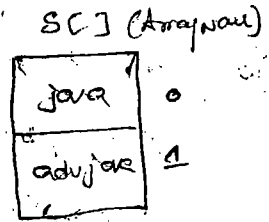 S[] (Arrayname)
java 0
advjava 1